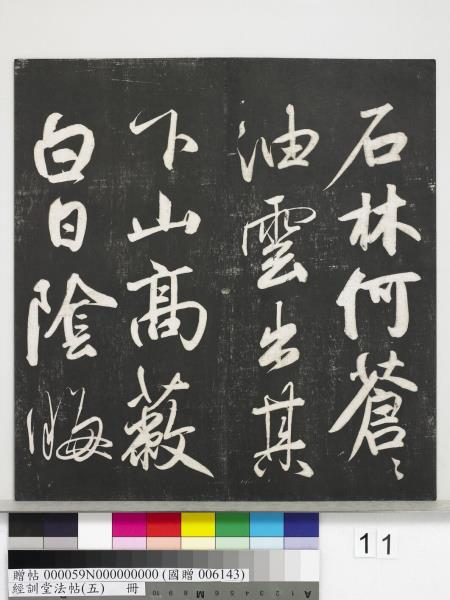 石林何蒼〻
油雲出其
下山高蔽
白日陰晦
11
贈帖 000059N000000000 (國贈 006143)
經訓堂法帖(五) 冊